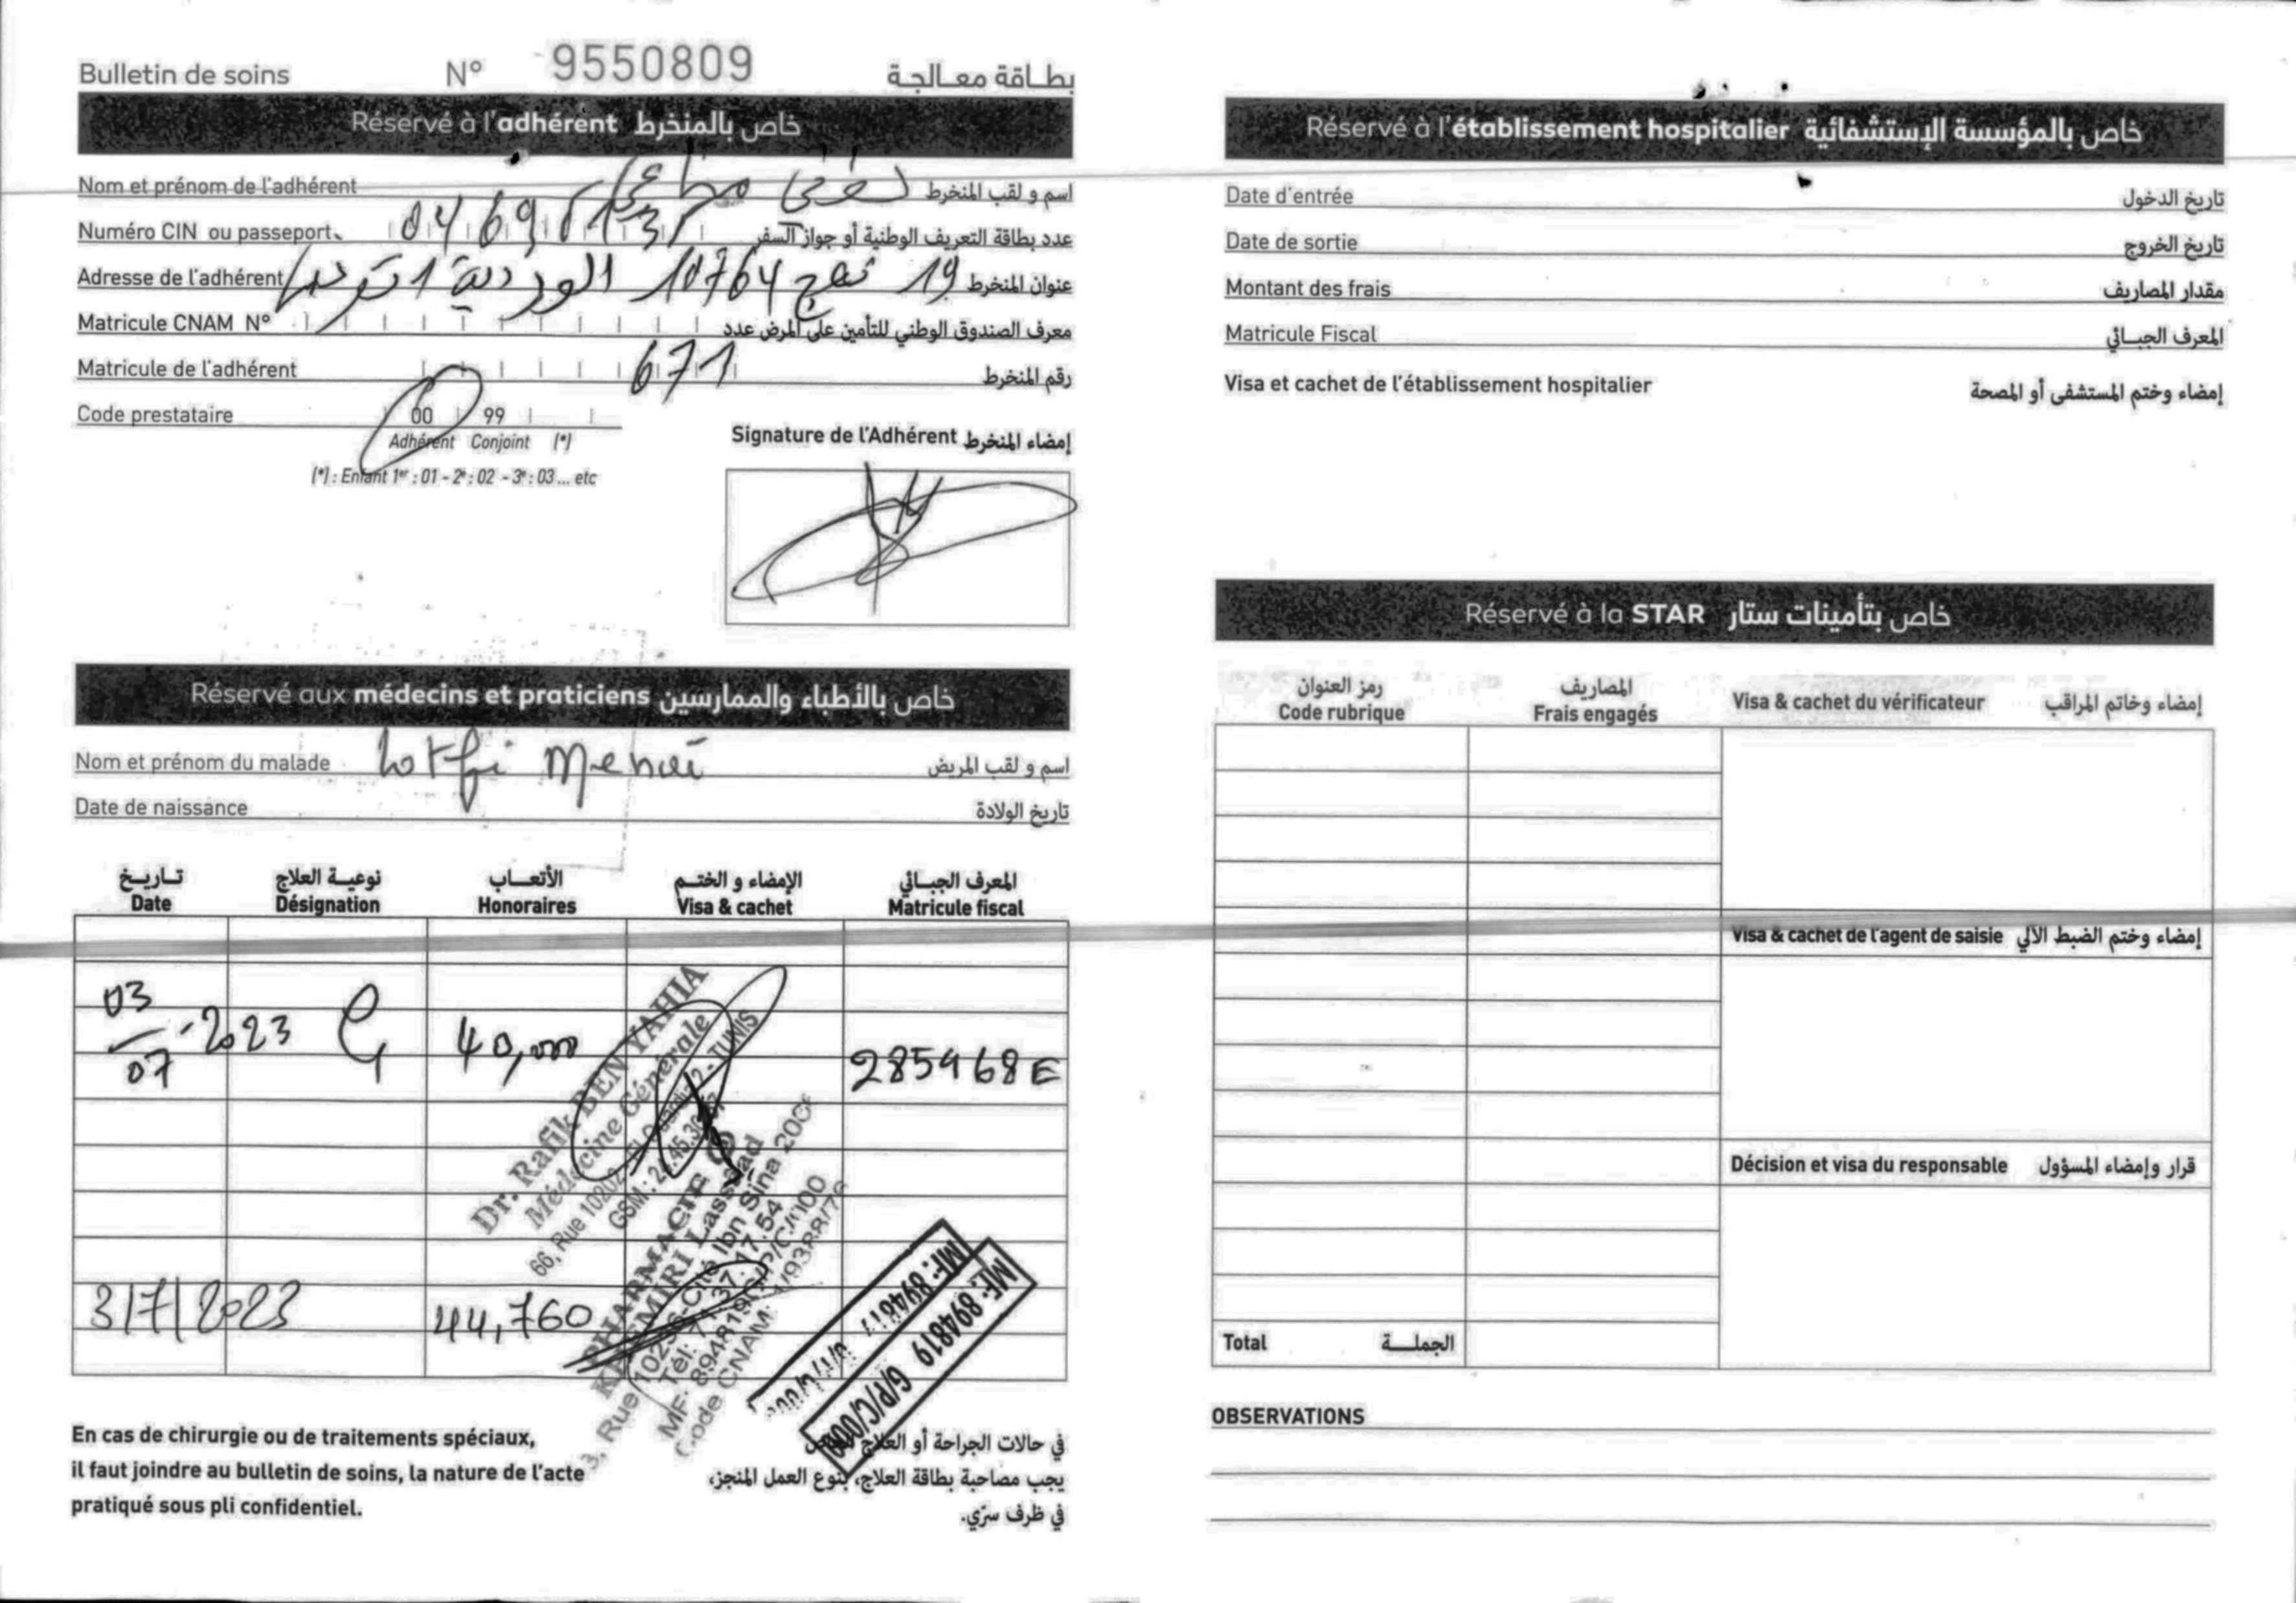 Bulletin de soins N° 9550809 بطاقة معالجة
Réservé à l'adhérent خاص بالمنخرط
Nom et prénom de l'adhérent لطفي اسم و لقب المنخرط
Numéro CIN ou passeport عدد بطاقة التعريف الوطنية أو جواز السفر
Adresse de l'adhérent 19 نهج 10764 الوردية 1 تونس عنوان المنخرط
Matricule CNAM N° معرف الصندوق الوطني للتأمين على المرض عدد
Matricule de l'adhérent 671 رقم المنخرط
Code prestataire 00 99
Adhérent Conjoint (*)
(*) : Enfant 1er : 01 - 2e : 02 - 3e : 03 ... etc
Signature de l'Adhérent إمضاء المنخرط
Réservé aux médecins et praticiens خاص بالأطباء والممارسين
Nom et prénom du malade Lotfi اسم و لقب المريض
Date de naissance تاريخ الولادة
تاريخ نوعية العلاج الأتعاب الإمضاء و الختم المعرف الجبائي
Date Désignation Honoraires Visa & cachet Matricule fiscal
03/07-2023 40,000 285468E
Dr. Rafik BEN YAHIA
Médecine Générale
66, Rue 10202 TUNIS
GSM :
3/7/2023 44,760
PHARMACIE
KHEMIRI Lassaad
3, Rue 10236-Cité Ibn Sina
Tél: 71.37.17.54
MF: 894819
Code CNAM:
MF: 894819
MF: 894819 G/P/C/000
En cas de chirurgie ou de traitements spéciaux,
il faut joindre au bulletin de soins, la nature de l'acte
pratiqué sous pli confidentiel.
في حالات الجراحة أو العلاج
يجب مصاحبة بطاقة العلاج، بنوع العمل المنجز،
في ظرف سرّي.
Réservé à l'établissement hospitalier خاص بالمؤسسة الإستشفائية
Date d'entrée تاريخ الدخول
Date de sortie تاريخ الخروج
Montant des frais مقدار المصاريف
Matricule Fiscal المعرف الجبائي
Visa et cachet de l'établissement hospitalier إمضاء وختم المستشفى أو المصحة
Réservé à la STAR خاص بتأمينات ستار
رمز العنوان المصاريف
Code rubrique Frais engagés Visa & cachet du vérificateur إمضاء وخاتم المراقب
Visa & cachet de l'agent de saisie إمضاء وختم الضبط الآلي
Décision et visa du responsable قرار وإمضاء المسؤول
Total الجملة
OBSERVATIONS